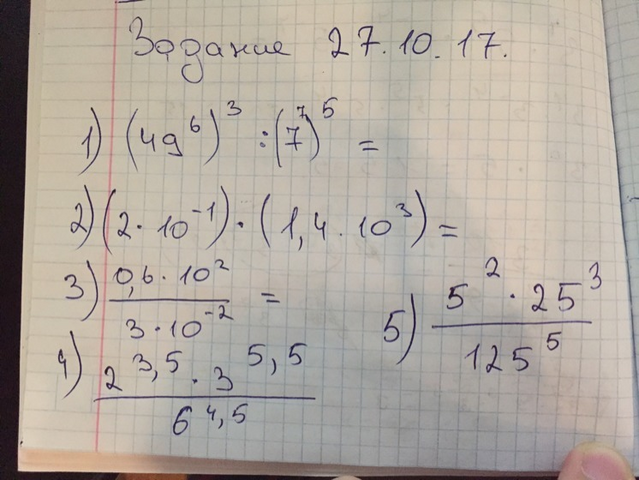 Задание 27.10.17.
1) (49⁶)³ : (7⁷)⁵ =
2) (2·10⁻¹)·(1,4·10³) =
3) 0,6·10²
3·10⁻² =
4) 2^3,5 · 3^5,5
6^4,5
5) 5² · 25³
125⁵